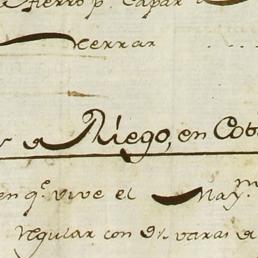 fierro p.ª tapar
cerrar ....
a Riego, en Cob
en q.e vive el May.m
regular con 9 varas d